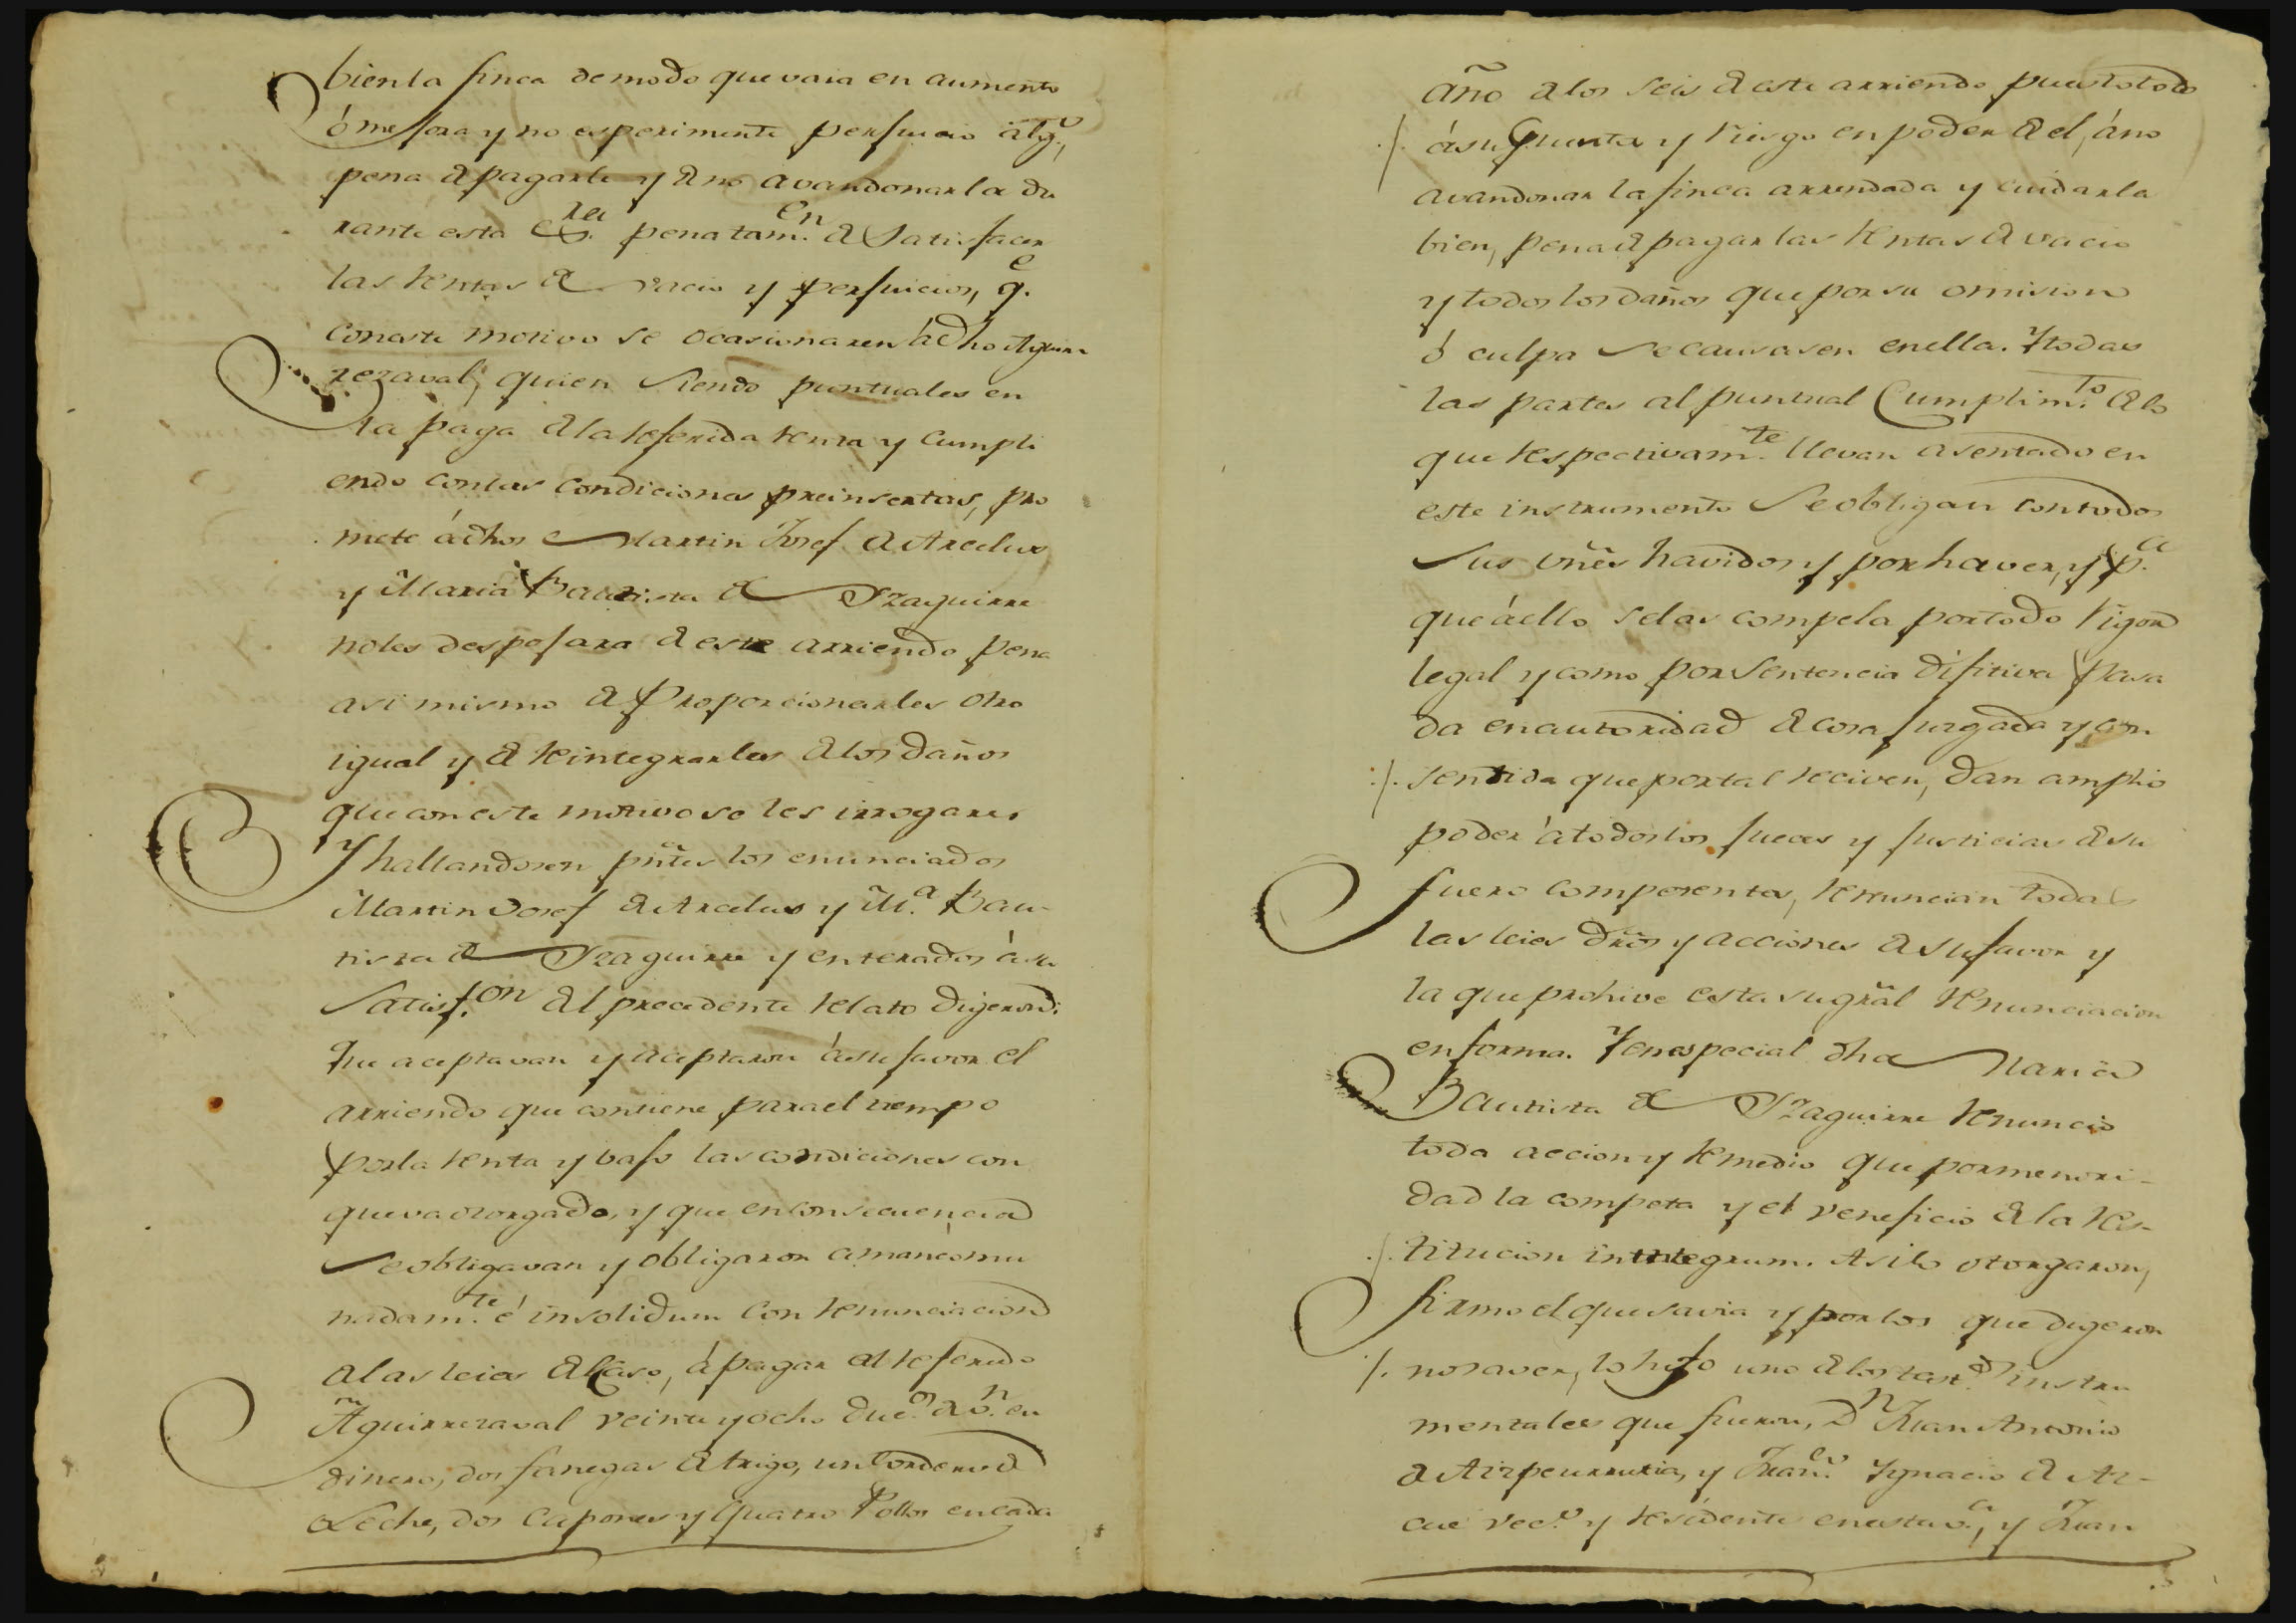 bien la finca de modo que vaia en aumento
ó mejora y no esperimente perjuicio alg.º,
pena de pagarle y de no avandonarla du
rante esta Es.ra pena tam.en de Satisfacer
las rentas de vacio y perjuicios, q.e
con este motivo se ocasionaren á dho Aguirr
rezaval, quien Siendo puntuales en
la paga de la referida renta y Cumpli
endo con las Condiciones preinsertas, pro
mete á dhos Martin Josef de Arcelus
y Maria Bautista de Yzaguirre
no les despojara de este arriendo pena
asi mismo de Proporcionarles otro
igual y de reintegrarles de los daños
que con este motivo se les irrogare,
Y hallandosen pñtes los enunciados
Martin Josef de Arcelus y M.a Bau-
tista de Yzaguirre y enterados á su
Satisf.on del precedente relato digeron:
Que aceptavan y aceptaron á su favor el
arriendo que contiene para el tiempo
por la renta y bajo las condiciones con
que va otorgado, y que en consecuencia
Se obligavan y obligaron a mancomu
nadam.te é insolidum Con renunciacion
de las leies del caso, á pagar al referido
Aguirrezaval veinte y ocho duc.os de v.n en
dinero, dos fanegas de trigo, un Cordero de
Leche, dos Capones y quatro Pollos en cada
año de los seis de este arriendo puesto todo
á su Quenta y riesgo en poder de el, á no
avandonar la finca arrendada y cuidarla
bien, pena de pagar las rentas de vacio
y todos los daños que por su omision
ó culpa se causasen en ella. Y todas
las partes al puntual Cumplim.to de lo
que respectivam.te llevan asentado en
este instrumento Se obligan con todos
Sus vñes havidos y por haver, y p.a
que á ello se las compela por todo rigor
legal y como por Sentencia difitiva Pasa
da en autoridad de cosa juzgada y con
sentida que por tal reciven, dan amplio
poder á todos los jueces y justicias de su
fuero competentes, renuncian todas
las leies dr̃os y acciones de su favor y
la que prohive esta su gr̃al renunciacion
en forma. Y en especial dha Maria
Bautista de Yzaguirre renuncio
toda accion y remedio que por menori-
dad la competa y el veneficio de la res-
titucion in integrum. Asi lo otorgaron,
firmo el que savia y por los que digeron
no saver, lo hizo uno de los test.s instru
mentales que fueron, D.n Juan Antonio
de Aizpeurrutia, y Fran.co Ygnacio de Az-
cue vec.º y residente en esta v.a, y Juan